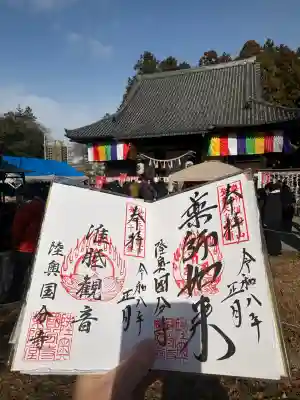 奉拝
令和八年
正月
薬師如来
陸奥国分
奉拝
令和八年
正月
准胝観音
陸奥国分寺